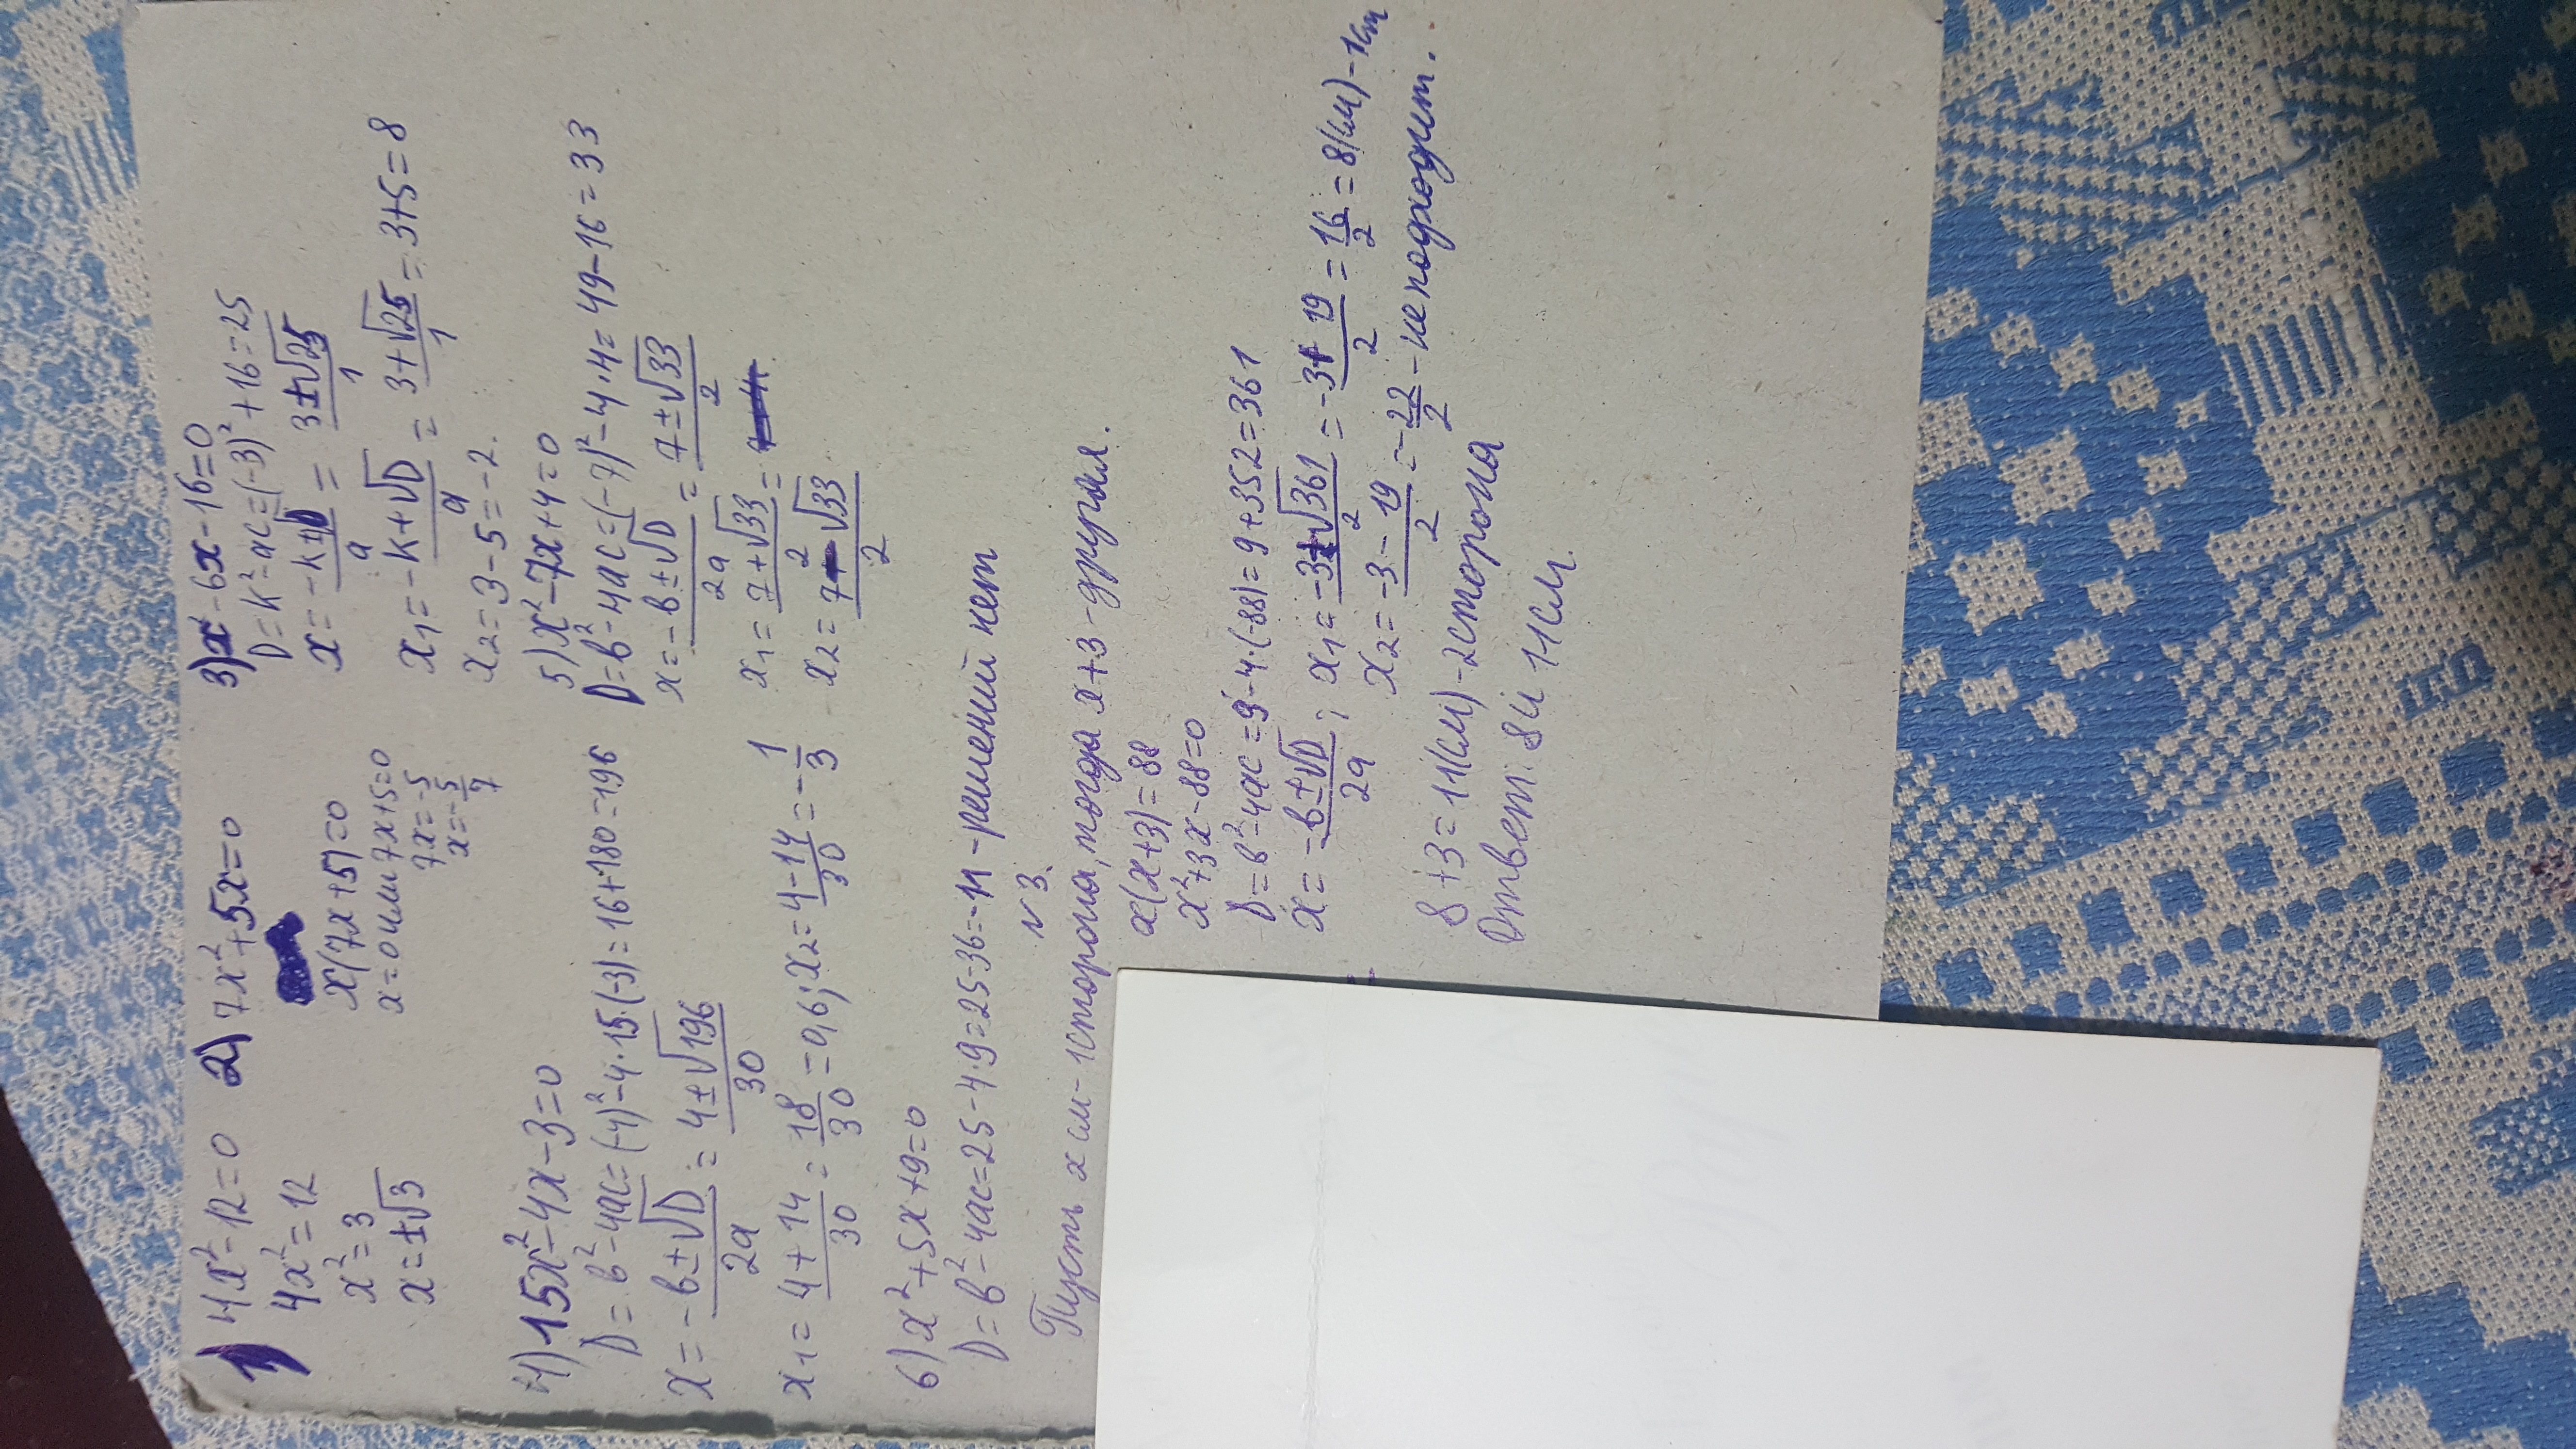 1) 4x²-12=0
4x²=12
x²=3
x=±√3
2) 7x²+5x=0
x(7x+5)=0
x=0 или 7x+5=0
7x=-5
x=-5/7
3) x²-6x-16=0
D=k²-ac=(-3)²+16=25
x=(-k±√D)/a=(3±√25)/1
x₁=(-k+√D)/a=(3+√25)/1=3+5=8
x₂=3-5=-2.
4) 15x²-4x-3=0
D=b²-4ac=(-4)²-4·15·(-3)=16+180=196
x=(-b±√D)/2a=(4±√196)/30
x₁=(4+14)/30=18/30=0,6; x₂=(4-14)/30=-1/3
5) x²-7x+4=0
D=b²-4ac=(-7)²-4·4=49-16=33
x=(-b±√D)/2a=(7±√33)/2
x₁=(7+√33)/2=
x₂=(7-√33)/2
6) x²+5x+9=0
D=b²-4ac=25-4·9=25-36=-11-решений нет
№3.
Пусть x см-1сторона, тогда x+3-другая.
x(x+3)=88
x²+3x-88=0
D=b²-4ac=9-4·(-88)=9+352=361
x=(-b±√D)/2a; x₁=(-3+√361)/2=(-3+19)/2=16/2=8(см)-1ст
x₂=(-3-19)/2=-22/2-не подходит.
8+3=11(см)-2сторона
Ответ: 8 и 11см